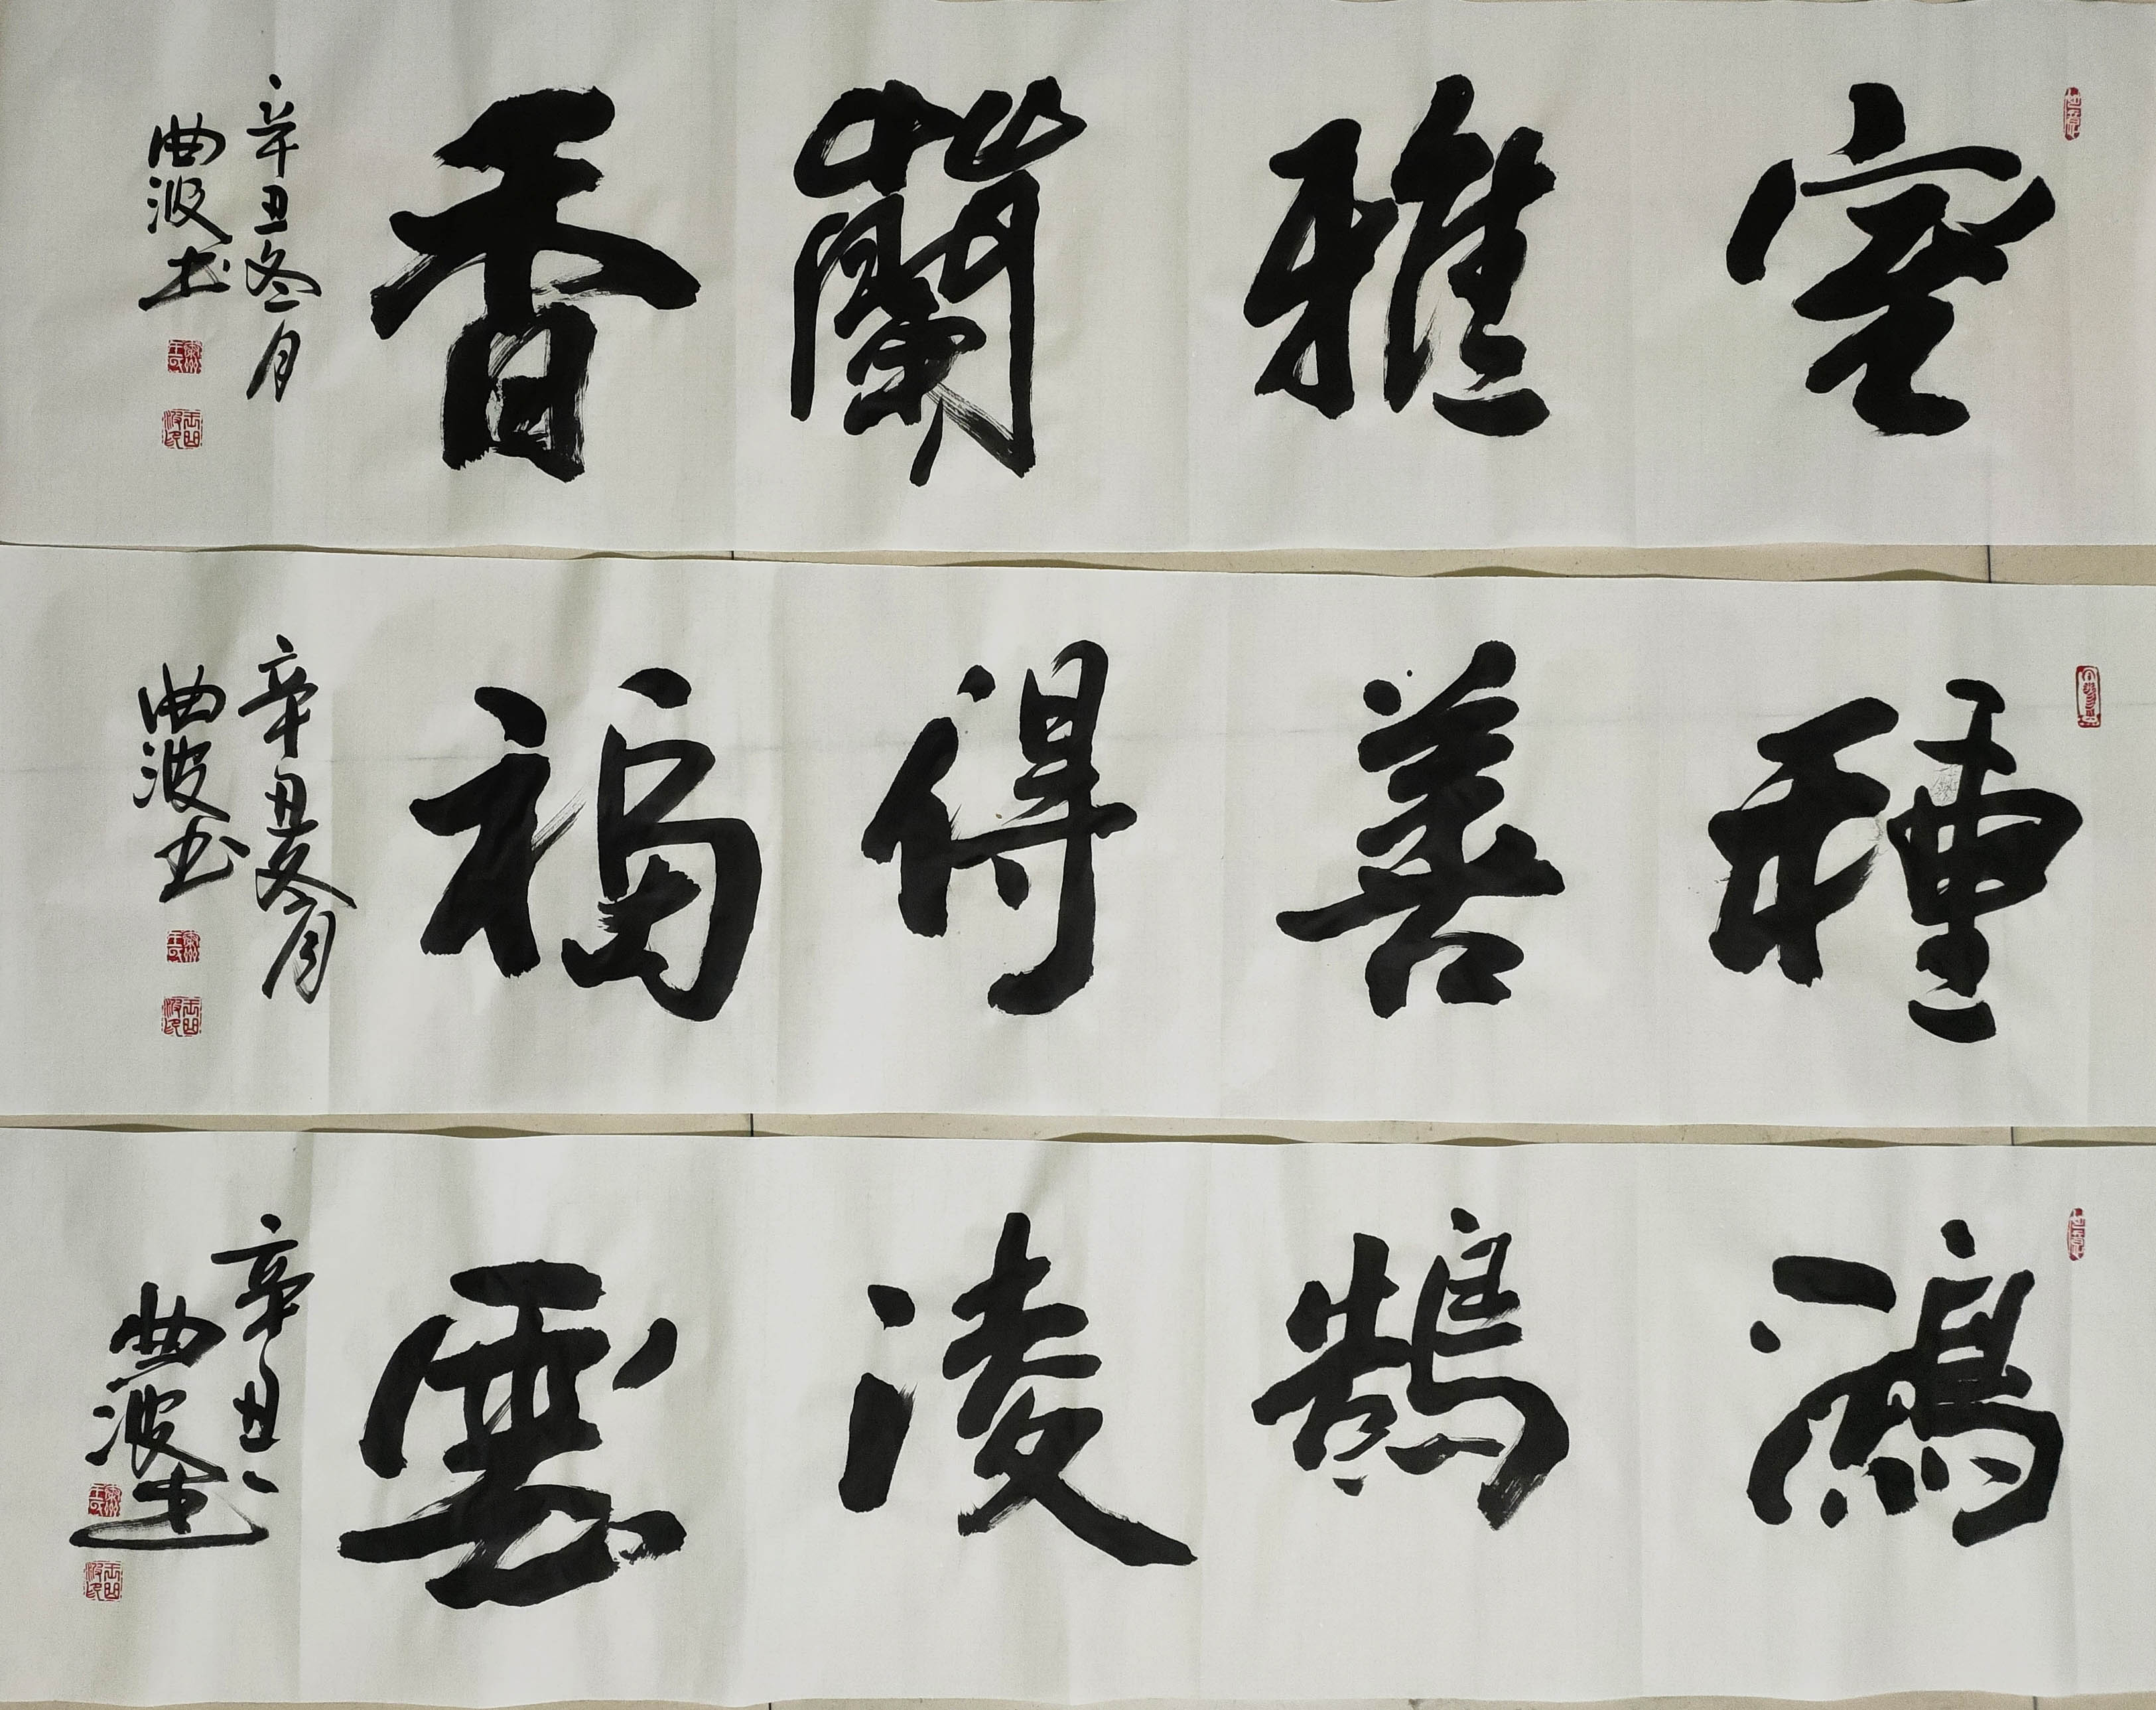 室雅蘭香
辛丑冬月
曲波书
種善得福
辛丑冬月
曲波书
鴻鵠凌雲
辛丑
曲波书